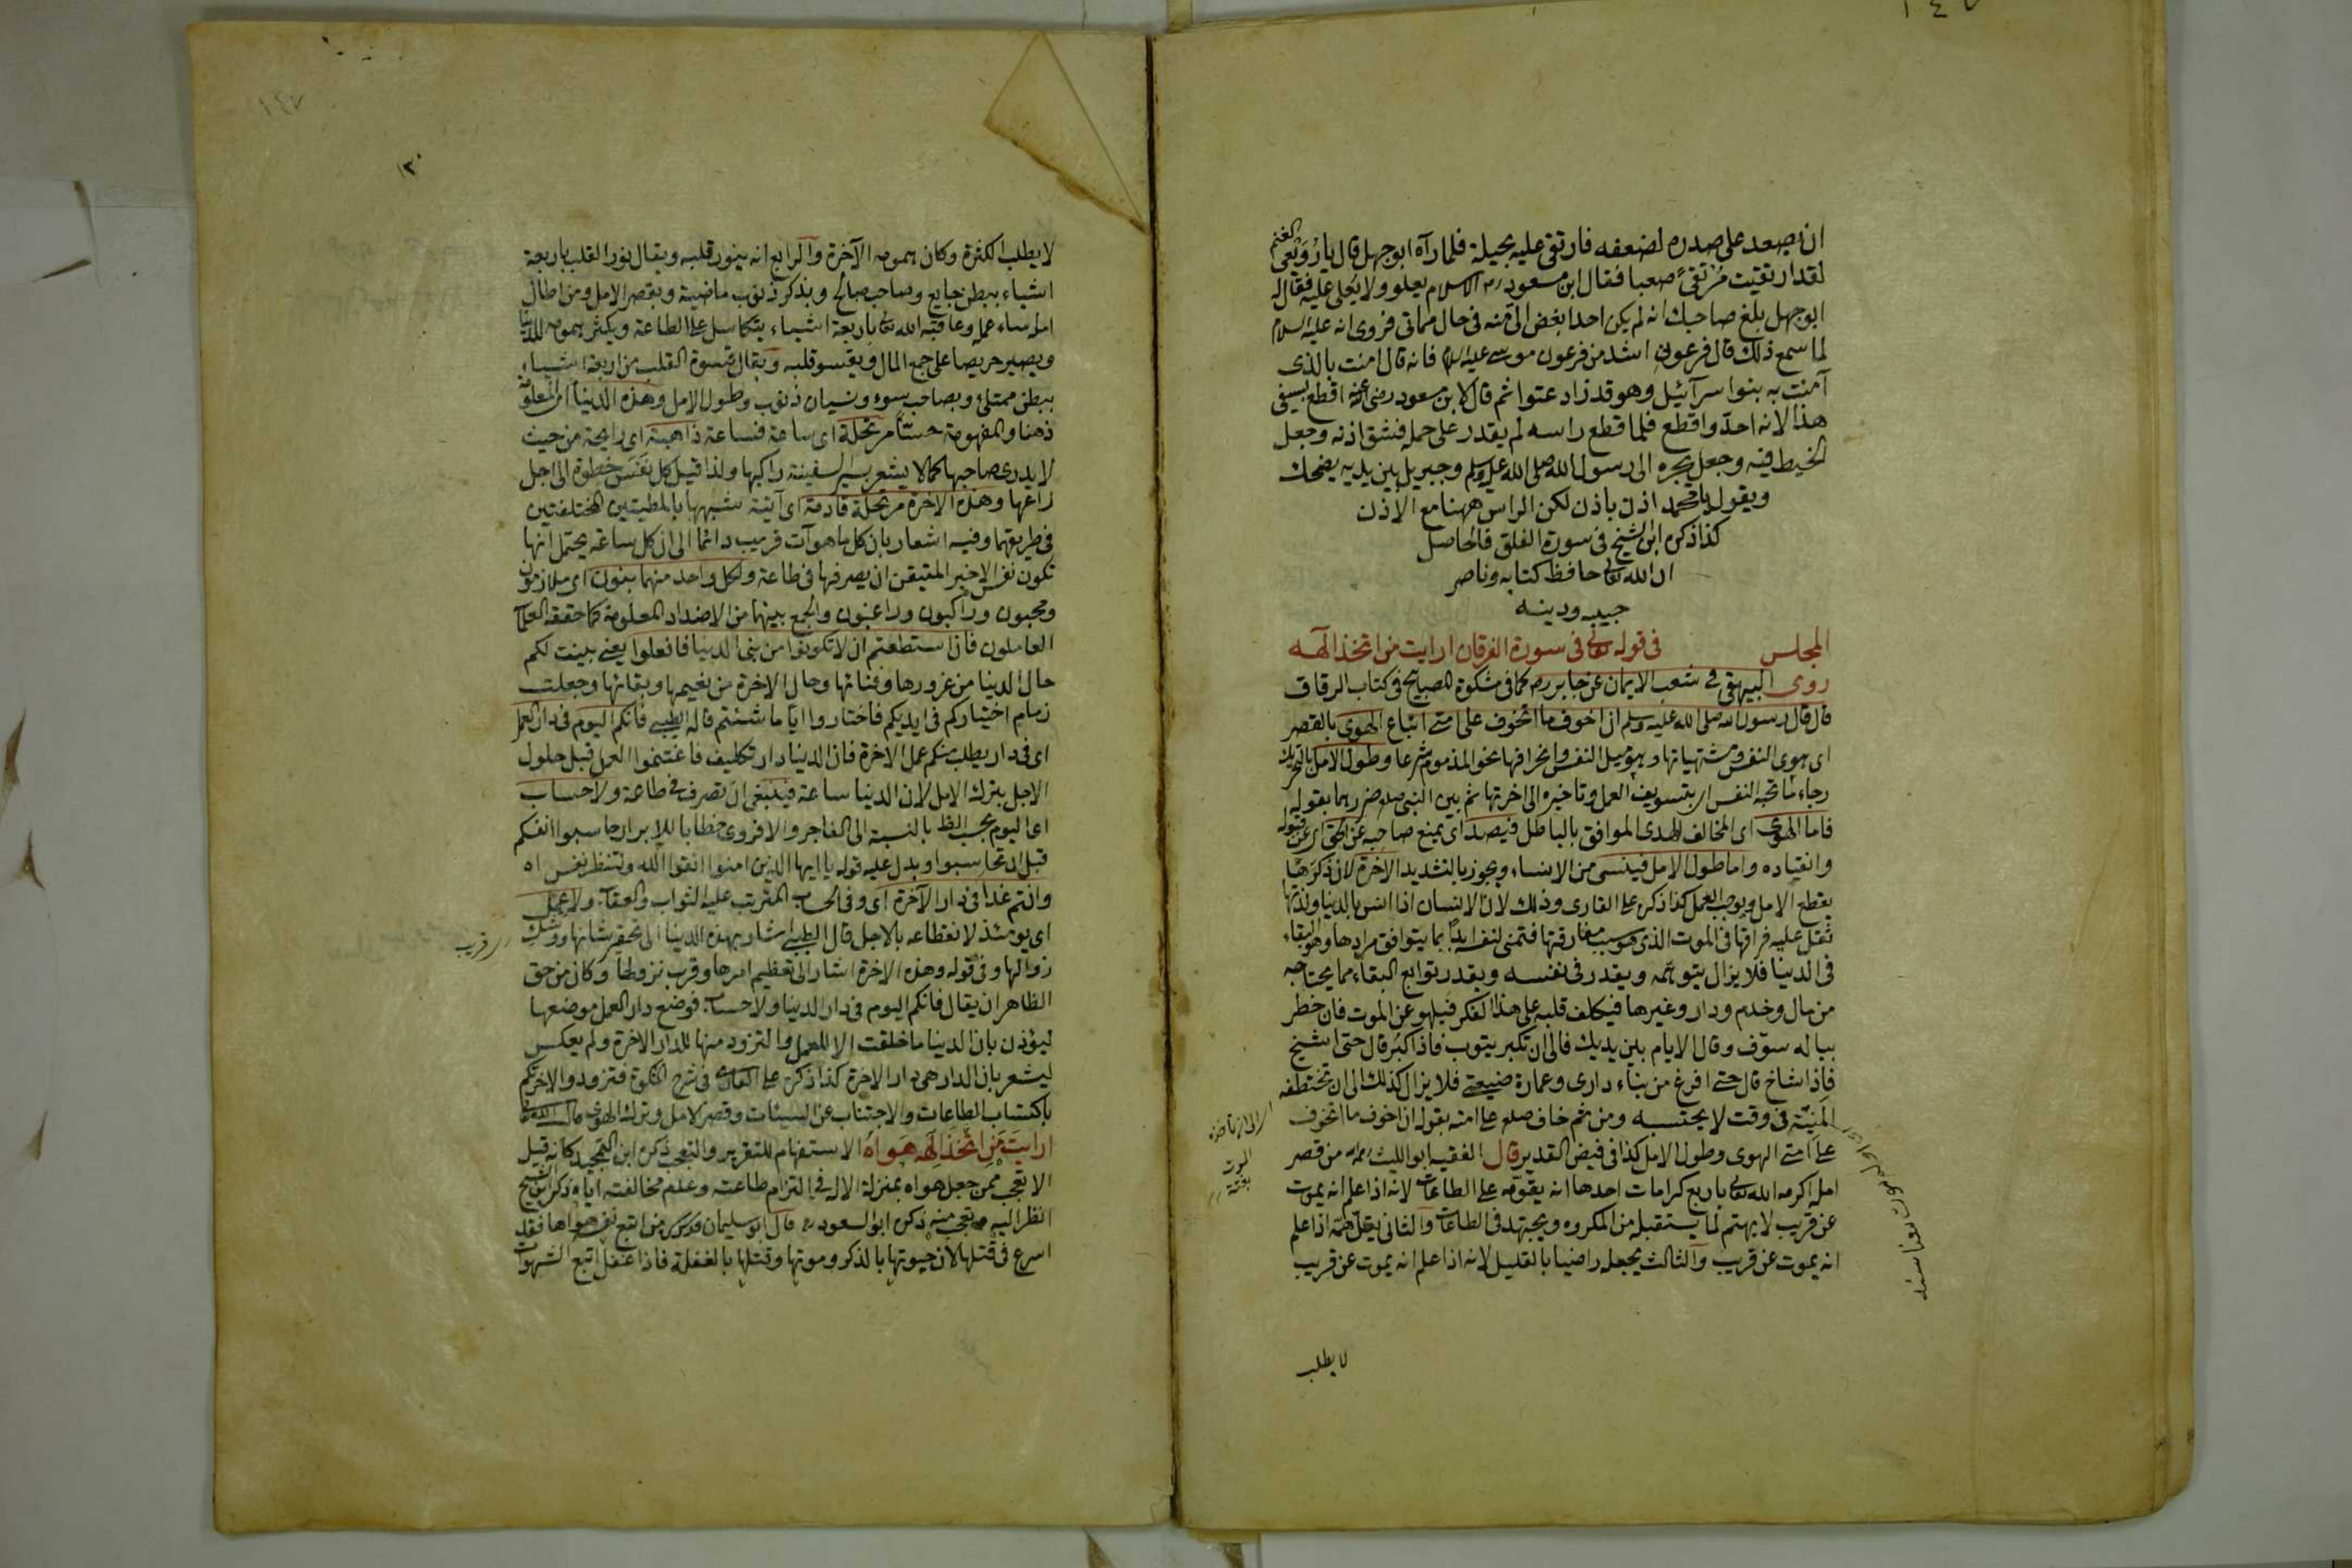 ان يصعد على صدره لضعفه فارتقى عليه بحيلة فلما رآه ابو جهل قال يا رويعى الغنم
لقد ارتقيت مرتقى صعبا فقال ابن مسعود رضه الاسلام يعلو ولا يعلى عليه فقال له
ابو جهل بلغ صاحبك انه لم يكن احدا بغض الى منه فى حال مماتى فروى انه عليه السلام
لما سمع ذلك قال فرعونى اشد من فرعون موسى عليه السلام فانه قال امنت بالذى
آمنت به بنوا سرآئيل وهو قد زاد عتوا ثم قال لابن مسعود رضى عنه اقطع بسيفى
هذا لانه احد واقطع فلما قطع راسه لم يقدر على حمله فشق اذنه وجعل
الخيط فيه وجعل يجره الى رسول الله صلى الله عليه وسلم وجبريل بين يديه يضحك
ويقول يا محمد اذن باذن لكن الراس ههنا مع الاذن
كذا ذكره ابن الشيخ فى سورة العلق فالحاصل
ان الله تعالى حافظ كتابه وناصر
حبيبه ودينه
المجلس فى قوله تعالى فى سورة الفرقان ارايت من اتخذ الهه
روى البيهقى فى شعب الايمان عن جابر رضه كما فى مشكوة المصابيح فى كتاب الرقاق
قال قال رسول الله صلى الله عليه وسلم ان اخوف ما اتخوف على امتى اتباع الهوى بالقصر
اى هوى النفس ومشتهياتها وهو ميل النفس وانحرافها نحو المذموم شرعا وطول الامل بالتحريك
رجاء ما تحبه النفس اى بتسويف العمل وتاخيره الى اخرتها ثم بين النبى صلعم ضررهما بقوله
فاما الهوى اى المخالف للهدى الموافق بالباطل فيصد اى يمنع صاحبه عن الحق اى عن قبوله
وانقياده واما طول الامل فينسى من الانساء ويجوز بالتشديد الاخرة لان ذكرها
يقطع الامل ويوجب العمل كذا ذكره على القارى وذلك لان الانسان اذا انس بالدنيا ولذتها
ثقل عليه فراقها فى الموت الذى هو سبب مفارقتها فتمنى لنفسه ابدا بما يتوافق مرادها وهو البقاء
فى الدنيا فلا يزال يتوهمه ويقدر فى نفسه ويقدر توابع البقاء مما يحتاجه
من مال وخدم ودار وغيرها فيكلف قلبه على هذا الفكر فيلهو عن الموت فان خطر
بباله سوّف وقال الايام بين يديك فالى ان تكبر يتوب فاذا كبر قال حتى اشيخ
فاذا شاخ قال حتى افرغ من بناء دارى وعمارة ضيعتى فلا يزال كذلك الى ان تختطفه
المنية فى وقت لا يحتسبه ومن ثم خاف صلعم على امته بقوله ان اخوف ما اتخوف
على امتى الهوى وطول الامل كذا فى فيض القدير قال الفقيه ابو الليث رحمه الله من قصر
امله اكرمه الله تعالى باربع كرامات احدها انه يقوّيه على الطاعات لانه اذا علم انه يموت
عن قريب لا يهتم لما يستقبله من المكروه ويجتهد فى الطاعات والثانى يقل همه اذا علم
انه يموت عن قريب والثالث يجعله راضيا بالقليل لانه اذا علم انه يموت عن قريب
لا يطلب
الموت
بغتة
لا يطلب الكثرة وكان همومه الآخرة والرابع انه ينور قلبه ويقال نور القلب باربعة
اشياء ببطن جايع وصاحب صالح ويذكر ذنوب ماضية وبقصر الامل ومن اطال
امله ساء عمله وعاقبه الله تعالى باربعة اشياء يتكاسل على الطاعة ويكثر همومه للدنيا
ويصير حريصا على جمع المال ويقسو قلبه ويقال قسوة القلب من اربعة اشياء
ببطن ممتلئ وبصاحب سوء ونسيان ذنوب وطول الامل وهذه الدنيا اى المعلومة
ذهنا والمفهومة حسّا مرتحلة اى ساعة فساعة ذاهبة اى رايحة من حيث
لا يدرى صاحبها كما لا يشعر بسير السفينة راكبها ولذا قيل كل نفس خطوة الى اجل
راعها وهذه الاخرة مرتحلة قادمة اى آتية شبهها بالمطيتين المختلفتين
فى طريقهما وفيه اشعار بان كل ما هو آت قريب دائما الى ان كل ساعة يحتمل انها
تكون نفس الاخير المتيقن ان يصرفها فى طاعة ولكل واحد منهما بنون اى ملازمون
ومحبون وراكبون وراغبون والجمع بينهما من الاضداد المعلومة كما حققه العلماء
العاملون فان استطعتم ان لا تكونوا من بنى الدنيا فافعلوا يعنى بينت لكم
حال الدنيا من غرورها وفنائها وحال الاخرة من نعيمها وبقائها وجعلت
زمام اختياركم فى ايديكم فاختاروا ايّا ما شئتم قاله الطيبى فانكم اليوم فى دار العمل
اى فى دار يطلب منكم عمل الاخرة فان الدنيا دار تكليف فاغتنموا العمل قبل حلول
الاجل بترك الامل لان الدنيا ساعة فينبغى ان تصرف فى طاعة ولا حساب
اى اليوم بحسب الظ بالنسبة الى الفاجر والا فروى خطابا للابرار حاسبوا انفسكم
قبل ان تحاسبوا ويدل عليه قوله يا ايها الذين امنوا اتقوا الله ولتنظر نفس اه
وانتم غدا فى دار الآخرة اى وفى الحساب المترتب عليه الثواب والعقاب ولا عمل
اى يومئذ لانقطاعه بالاجل قال الطيبى اشار بهذه الدنيا الى تحقير شانها ووشك
زوالها وفى قوله وهذه الاخرة اشار الى تعظيم امرها وقرب نزولها وكان من حق
الظاهر ان يقال فانكم اليوم فى دار الدنيا ولا حساب فوضع دار العمل موضعها
ليؤذن بان الدنيا ما خلقت الا للعمل والتزود منها للدار الاخرة ولم يعكس
ليشعر بان الدار هى دار الاخرة كذا ذكره على القارى فى شرح المشكوة فتزودوا لاخرتكم
باكتساب الطاعات والاجتناب عن السيئات وقصر الامل وترك الهوى قال الله تعالى
ارايت من اتخذ الهه هواه الاستفهام للتقرير والتعجب ذكره ابن التمجيد كانه قيل
الا تعجب ممن جعل هواه بمنزلة الاله فى التزام طاعته وعدم مخالفته اياه ذكره ابن الشيخ
انظر اليه وتعجب منه ذكره ابو السعود رح قال ابو سليمان من اتبع نفسه هواها فقد
اسرع فى قتلها لان حيوتها بالذكر وموتها وقتلها بالغفلة فاذا غفل اتبع الشهوات
اى قريب
١٤٧